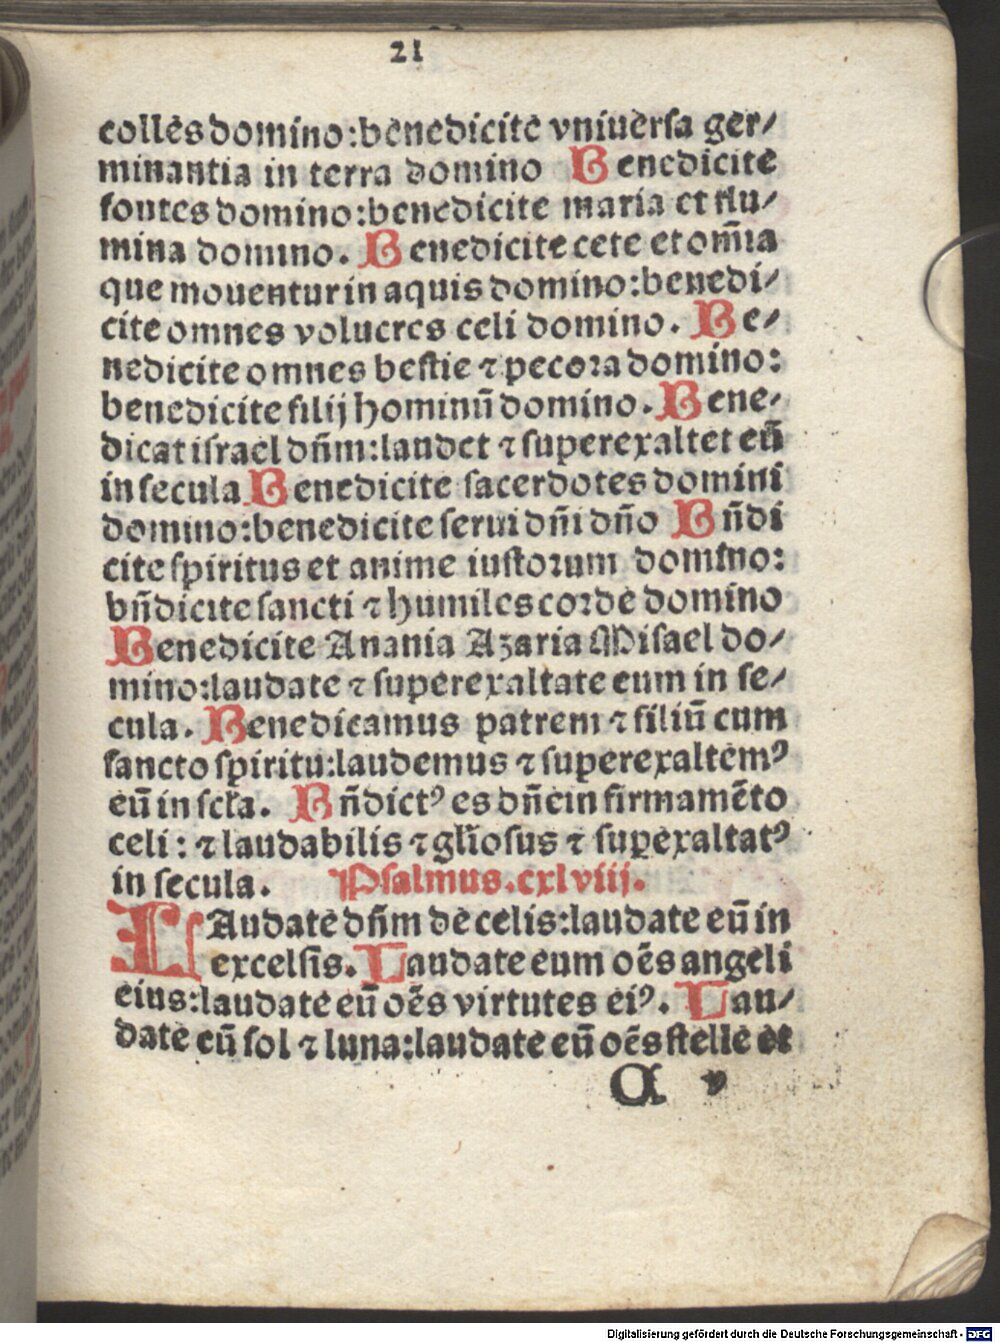 21
colles domino:benedicite vniuersa ger⸗
minantia in terra domino Benedicite
fontes domino:benedicite maria et flu⸗
mina domino. Benedicite cete et om̄ia
que mouentur in aquis domino:benedi⸗
cite omnes volucres celi domino. Be⸗
nedicite omnes bestie ⁊ pecora domino:
benedicite filij hominū domino. Bene⸗
dicat israel dn̄m:laudet ⁊ superexaltet eū
in secula Benedicite sacerdotes domini
domino:benedicite serui dn̄i dn̄o Bn̄di
cite spiritus et anime iustorum domino:
bn̄dicite sancti ⁊ humiles corde domino
Benedicite Anania Azaria Misael do⸗
mino:laudate ⁊ superexaltate eum in se⸗
cula. Benedicamus patrem ⁊ filiū cum
sancto spiritu:laudemus ⁊ superexaltemꝰ
eū in scl̄a. Bn̄dictꝰ es dn̄e in firmamēto
celi: ⁊ laudabilis ⁊ gl̄iosus ⁊ suꝑexaltatꝰ
in secula. Psalmus.cxlviij.
LAudate dn̄m de celis:laudate eū in
excelsis. Laudate eum oēs angeli
eius:laudate eū oēs virtutes eiꝰ. Lau⸗
date eū sol ⁊ luna:laudate eū oēs stelle et
A v
Digitalisierung gefördert durch die Deutsche Forschungsgemeinschaft - DFG